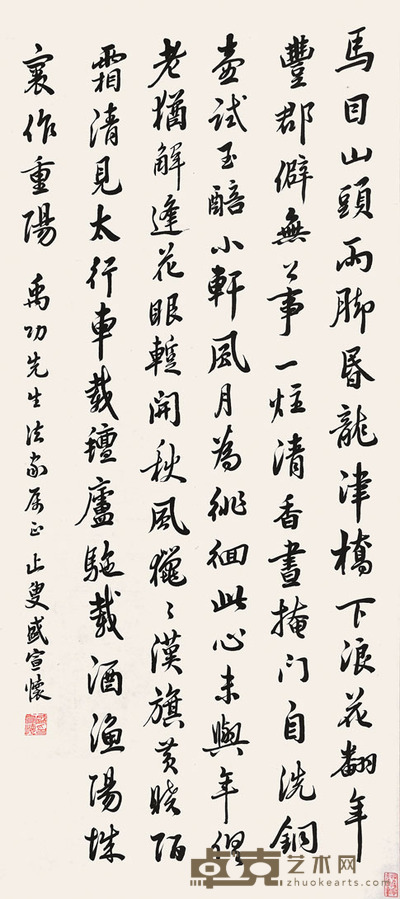 馬目山頭雨脚昏龍津橋下浪花翻年
豐郡僻無公事一炷清香晝掩门自洗銅
壺試玉醅小軒風月為徘徊此心未與年俱
老猶解逢花眼暫開秋風獵〻漢旗黄曉陌
霜清見太行車載氊廬駞載酒漁陽城
裏作重陽
禹功先生法家属正 止叟盛宣懷
卓克艺术网
zhuokearts.com